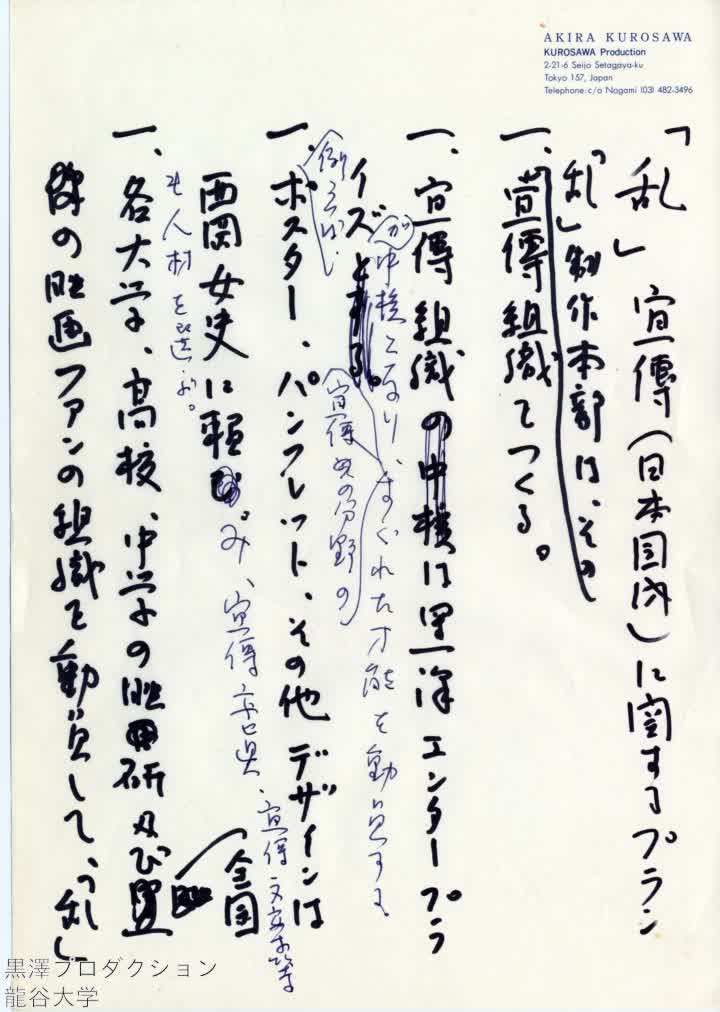 AKIRA KUROSAWA
KUROSAWA Production
2-21-6 Seijo Setagaya-ku
Tokyo 157, Japan
Telephone: c/o Nogami (03) 482-3496
「乱」宣傳(日本国内)に関するプラン
「乱」制作本部は、その
一、宣傳組織をつくる。
一、宣傳組織の中核は黒澤エンタープラ
イズとする。
が中核となり、すぐれた才能を動員する
宣傳の分野の
例えば、
一、ポスター、パンフレット、その他デザインは
西岡女史に頼み、宣傳写真、宣傳文案等
も人材を選ぶ。
一、各大学、高校、中学の映画研及び
全国
の映画ファンの組織を動員して、「乱」
黒澤プロダクション
龍谷大学